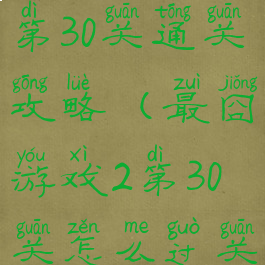 dì guān tōng guān
第30关通关
gōng lüè zuì jiǒng
攻略(最囧
yóu xì dì
游戏2第30
guān zěn me guò guān
关怎么过关